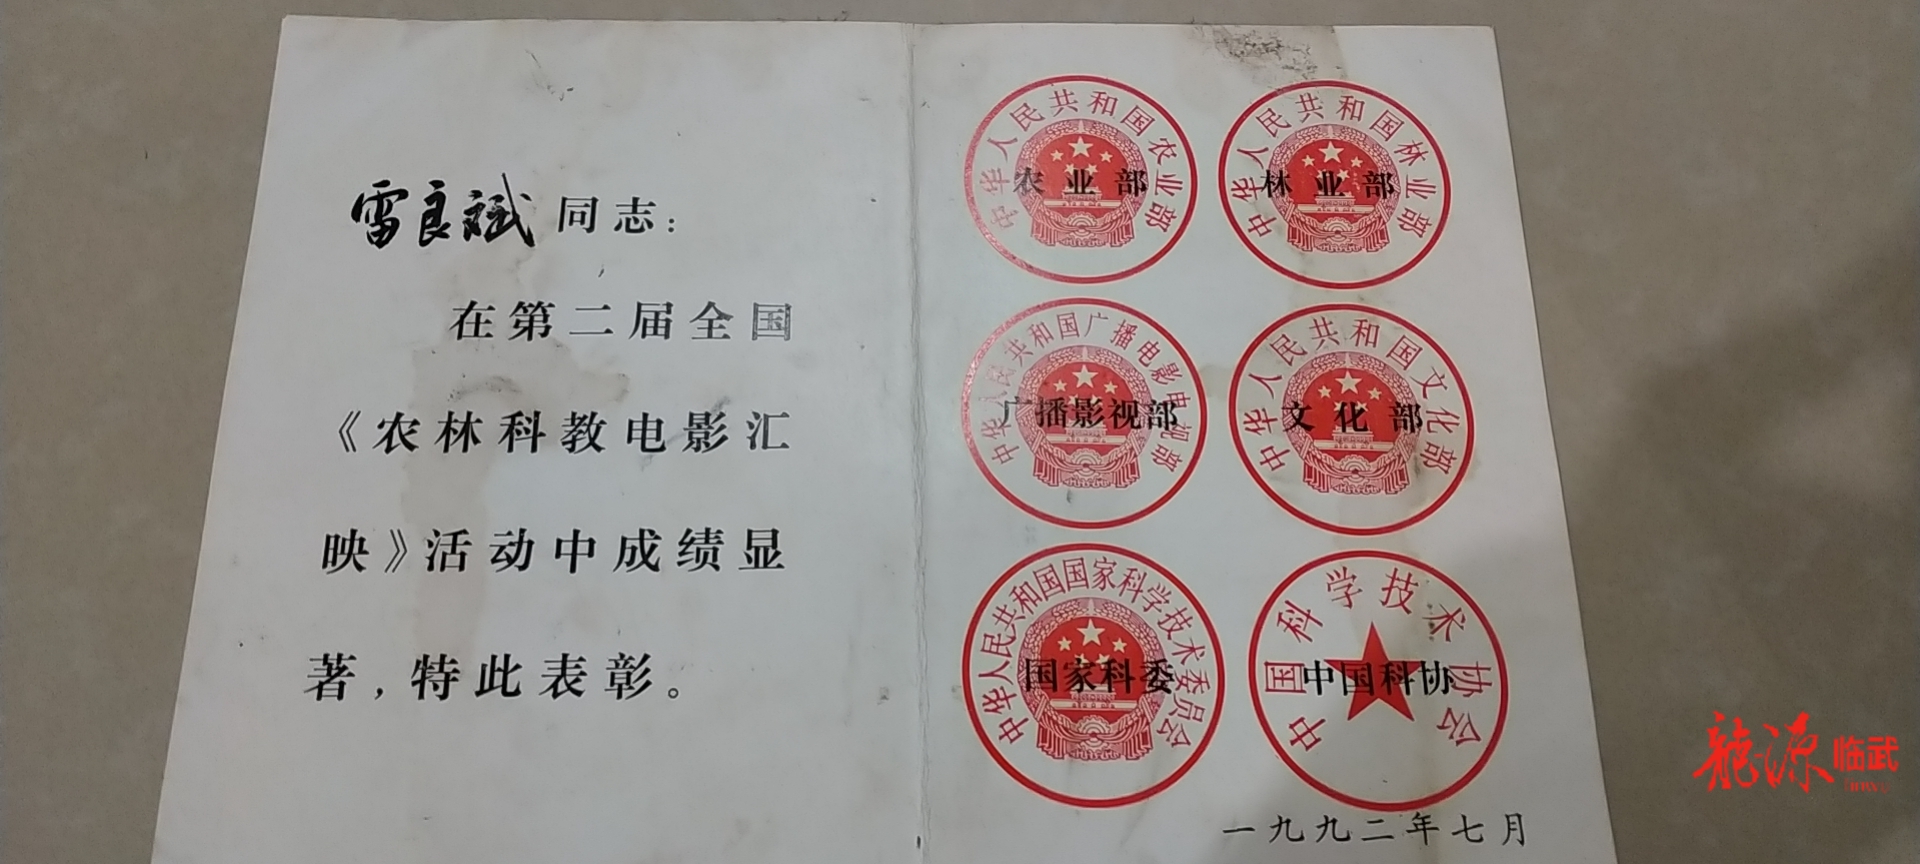 雷良斌同志:
在第二届全国
《农林科教电影汇
映》活动中成绩显
著,特此表彰。
中华人民共和国农业部
农业部
中华人民共和国林业部
林业部
中华人民共和国广播电影电视部
广播影视部
中华人民共和国文化部
文化部
中华人民共和国国家科学技术委员会
国家科委
中国科学技术协会
中国科协
一九九二年七月
龍源临武